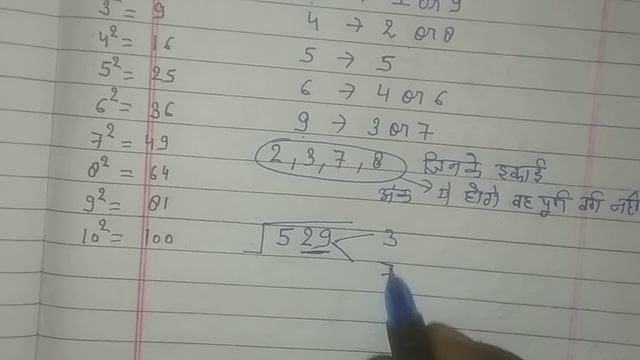 3² = 9
4² = 16
5² = 25
6² = 36
7² = 49
8² = 64
9² = 81
10² = 100
1 or 9
4 → 2 or 8
5 → 5
6 → 4 or 6
9 → 3 or 7
2, 3, 7, 8 जिनके इकाई
अंक में होंगे वह पूर्ण वर्ग नहीं
√529 3
7